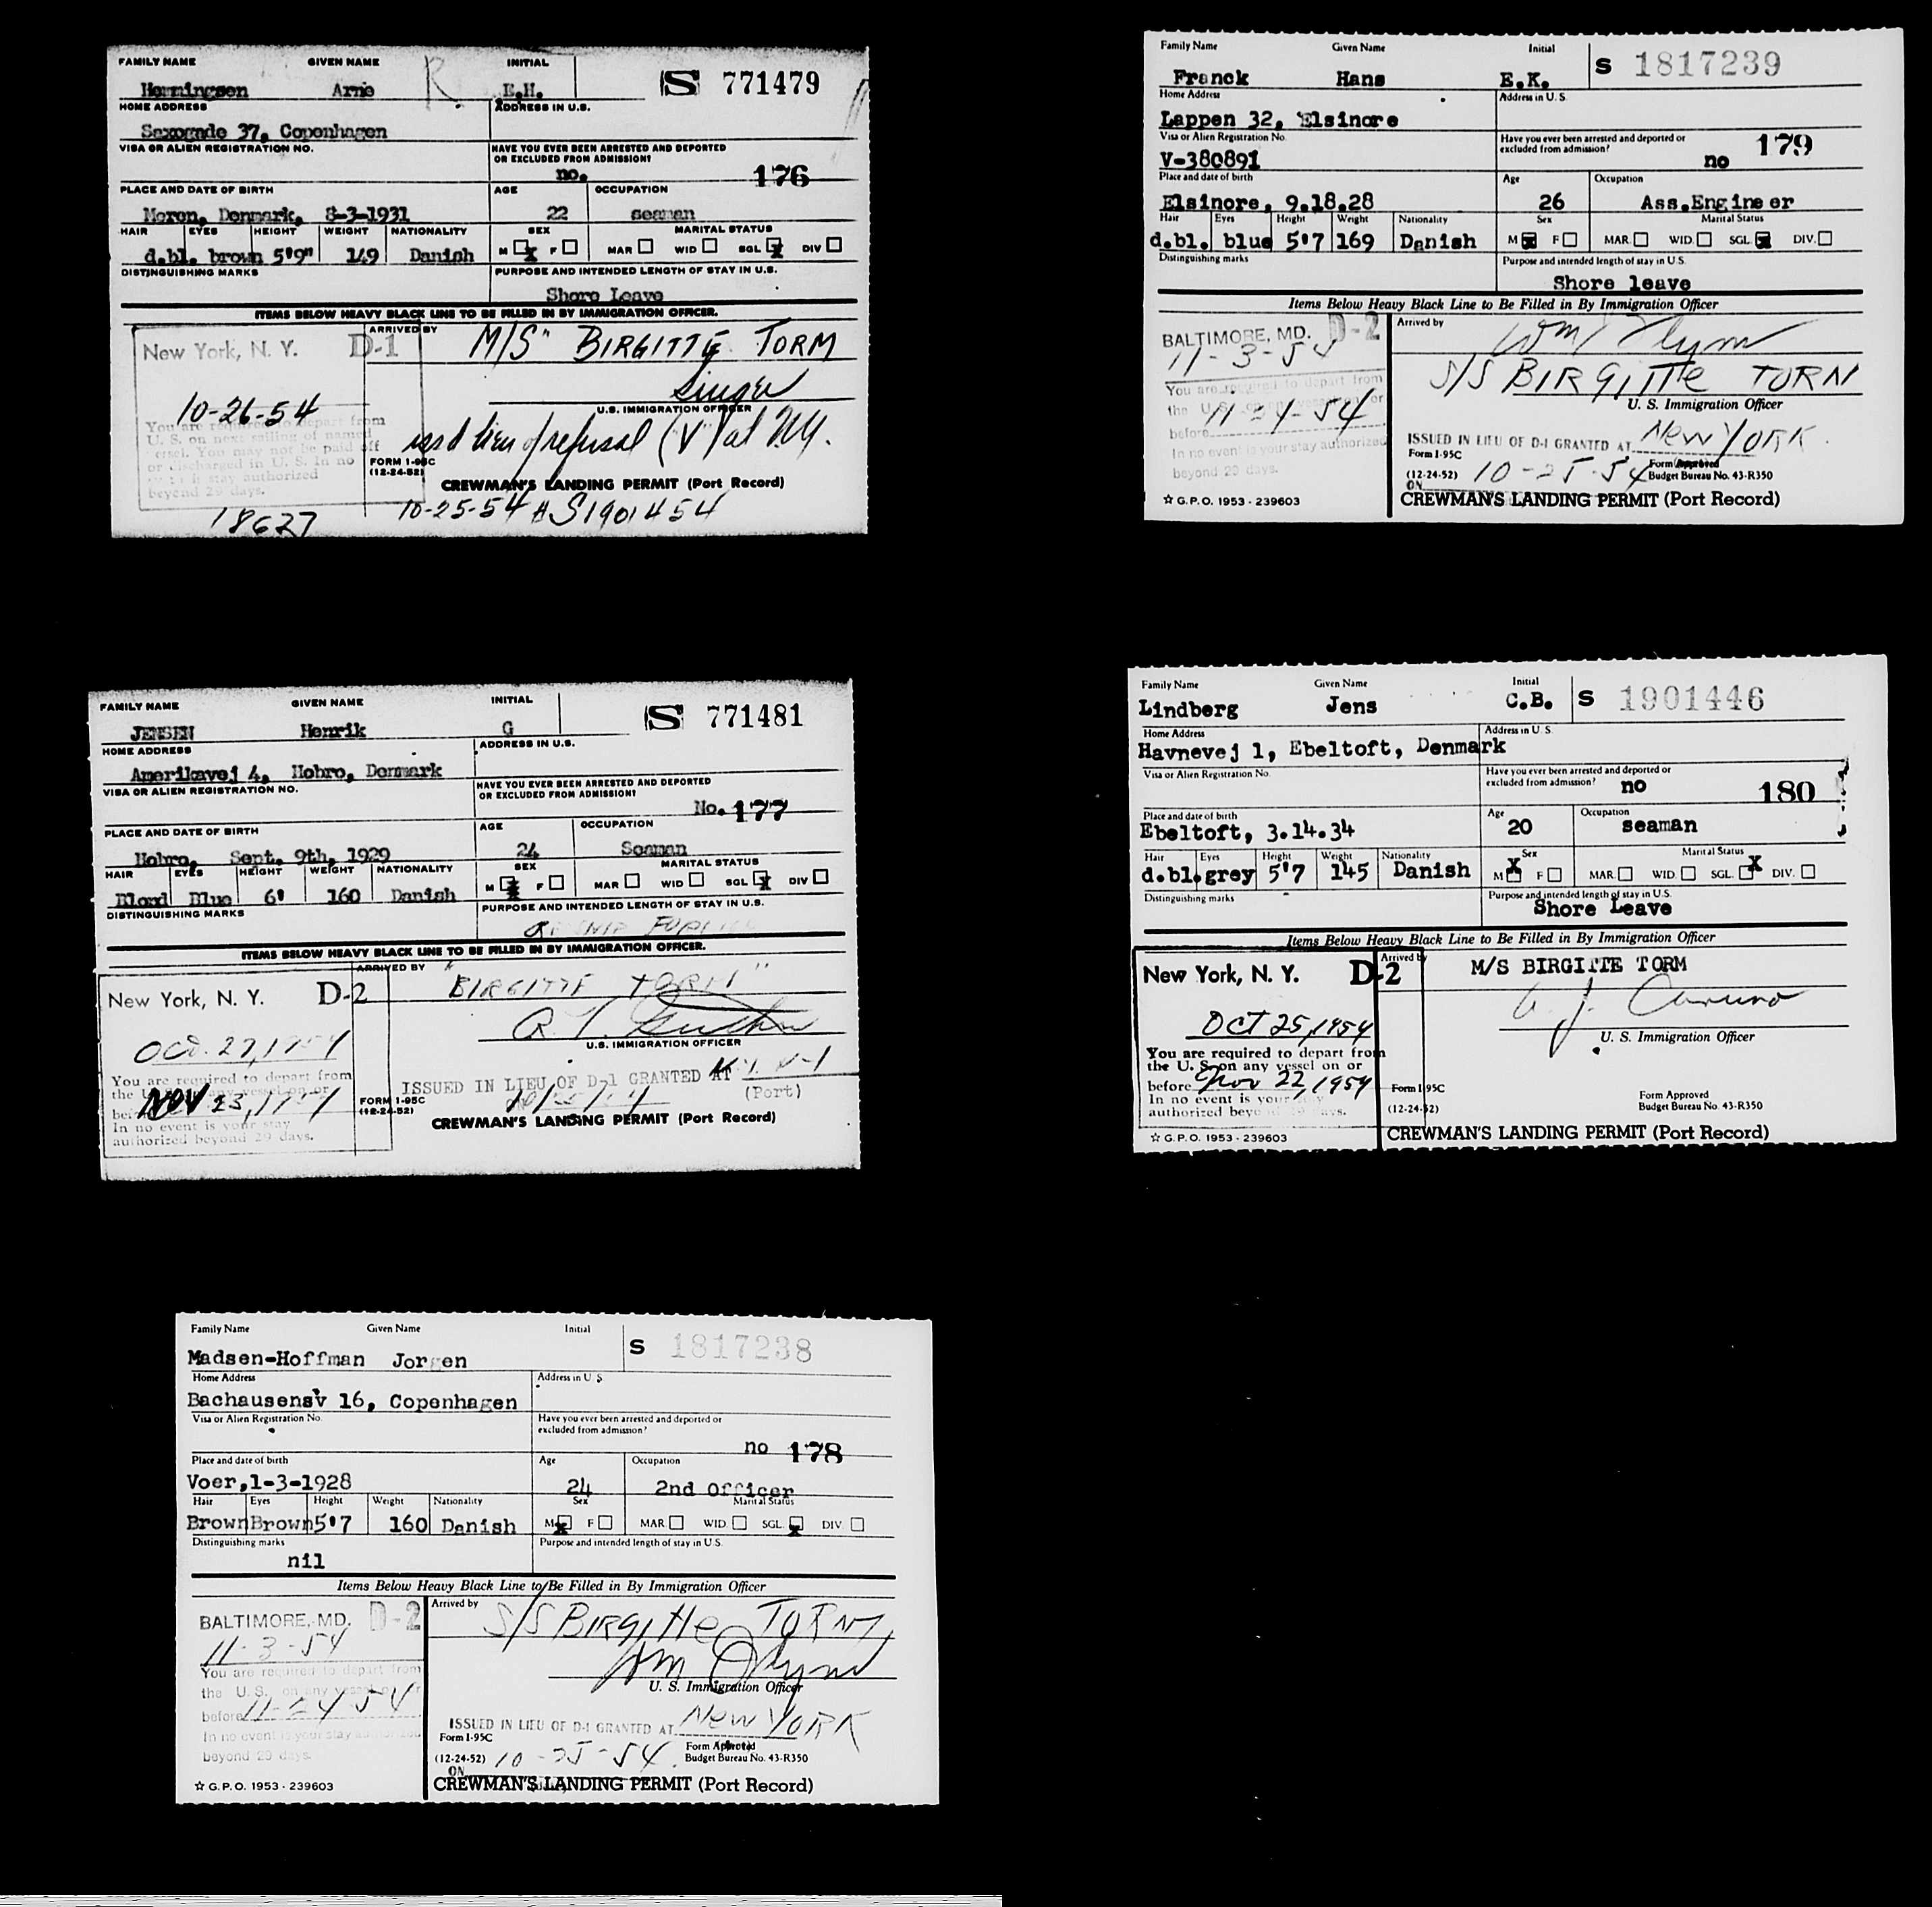 FAMILY NAME GIVEN NAME INITIAL
Hemmingsen Arne R E.H. S 771479
HOME ADDRESS ADDRESS IN U.S.
Saxogade 37, Copenhagen
VISA OR ALIEN REGISTRATION NO. HAVE YOU EVER BEEN ARRESTED AND DEPORTED OR EXCLUDED FROM ADMISSION?
no. 176
PLACE AND DATE OF BIRTH AGE OCCUPATION
Denmark, 8-3-1931 22 seaman
HAIR EYES HEIGHT WEIGHT NATIONALITY SEX MARITAL STATUS
d.bl. brown 5'9" 149 Danish M X F MAR WID SGL X DIV
DISTINGUISHING MARKS PURPOSE AND INTENDED LENGTH OF STAY IN U.S.
Shore Leave
ITEMS BELOW HEAVY BLACK LINE TO BE FILLED IN BY IMMIGRATION OFFICER.
New York, N. Y. D-1 ARRIVED BY M/S" BIRGITTE TORM
10-26-54
U.S. IMMIGRATION OFFICER
You are required to depart from
U. S. on next sailing of named
vessel. You may not be paid off
or discharged in U. S. In no
event is stay authorized
beyond 29 days.
lieu of refusal (V) at N.Y.
FORM I-95C
(12-24-52)
CREWMAN'S LANDING PERMIT (Port Record)
18627 10-25-54 # S1901454
Family Name Given Name Initial
Franck Hans E.K. S 1817239
Home Address Address in U. S.
Lappen 32, Elsinore
Visa or Alien Registration No. Have you ever been arrested and deported or excluded from admission?
V-380891 no 179
Place and date of birth Age Occupation
Elsinore, 9.18.28 26 Ass.Engineer
Hair Eyes Height Weight Nationality Sex Marital Status
d.bl. blue 5'7 169 Danish M X F MAR. WID. SGL. X DIV.
Distinguishing marks Purpose and intended length of stay in U.S.
Shore leave
Items Below Heavy Black Line to Be Filled in By Immigration Officer
BALTIMORE, MD. D-2 Arrived by Wm Flynn
11-3-54 S/S BIRGITTE TORM
U. S. Immigration Officer
You are required to depart from
the U. S. on any vessel on or
before 11-24-54
In no event is your stay authorized
beyond 29 days.
ISSUED IN LIEU OF D-1 GRANTED AT New YORK.
Form I-95C
(12-24-52) ON 10-25-54 Form Approved
Budget Bureau No. 43-R350
☆ G.P.O. 1953 - 239603 CREWMAN'S LANDING PERMIT (Port Record)
FAMILY NAME GIVEN NAME INITIAL
JENSEN Henrik G S 771481
HOME ADDRESS ADDRESS IN U.S.
Amerikavej 4, Hobro, Denmark
VISA OR ALIEN REGISTRATION NO. HAVE YOU EVER BEEN ARRESTED AND DEPORTED OR EXCLUDED FROM ADMISSION?
No. 177
PLACE AND DATE OF BIRTH AGE OCCUPATION
Hobro, Sept. 9th, 1929 24 Seaman
HAIR EYES HEIGHT WEIGHT NATIONALITY SEX MARITAL STATUS
Blond Blue 6' 160 Danish M X F MAR WID SGL X DIV
DISTINGUISHING MARKS PURPOSE AND INTENDED LENGTH OF STAY IN U.S.
ITEMS BELOW HEAVY BLACK LINE TO BE FILLED IN BY IMMIGRATION OFFICER.
New York, N. Y. D-2 ARRIVED BY "BIRGITTE TORM"
Oct. 27, 1954
U.S. IMMIGRATION OFFICER
You are required to depart from
the U
Nov 23, 1954
In no event is your stay
authorized beyond 29 days.
ISSUED IN LIEU OF D-1 GRANTED AT
(Port)
FORM I-95C
(12-24-52)
CREWMAN'S LANDING PERMIT (Port Record)
Family Name Given Name Initial
Lindberg Jens C.B. S 1901446
Home Address Address in U. S.
Havnevej 1, Ebeltoft, Denmark
Visa or Alien Registration No. Have you ever been arrested and deported or excluded from admission?
no 180
Place and date of birth Age Occupation
Ebeltoft, 3.14.34 20 seaman
Hair Eyes Height Weight Nationality Sex Marital Status
d.bl. grey 5'7 145 Danish M X F MAR. WID. SGL. X DIV.
Distinguishing marks Purpose and intended length of stay in U.S.
Shore Leave
Items Below Heavy Black Line to Be Filled in By Immigration Officer
New York, N. Y. D-2 Arrived by M/S BIRGITTE TORM
OCT 25, 1954
U. S. Immigration Officer
You are required to depart from
the U. S. on any vessel on or
before Nov 22, 1954
In no event is your stay
authorized beyond 29 days.
Form I-95C
(12-24-52)
Form Approved
Budget Bureau No. 43-R350
☆ G.P.O. 1953 - 239603 CREWMAN'S LANDING PERMIT (Port Record)
Family Name Given Name Initial
Madsen-Hoffman Jorgen S 1817238
Home Address Address in U S
Bachausensv 16, Copenhagen
Visa or Alien Registration No. Have you ever been arrested and deported or excluded from admission?
no 178
Place and date of birth Age Occupation
Voer,1-3-1928 24 2nd Officer
Hair Eyes Height Weight Nationality Sex Marital Status
Brown Brown 5'7 160 Danish M X F MAR WID. SGL. X DIV
Distinguishing marks Purpose and intended length of stay in U.S.
nil
Items Below Heavy Black Line to Be Filled in By Immigration Officer
BALTIMORE, MD. D-2 Arrived by S/S BIRGITTE TORM
11-3-54 Wm Flynn
U. S. Immigration Officer
You are required to depart from
the U. S. on any vessel on or
before 11-24-54
In no event is your stay authorized
beyond 29 days.
ISSUED IN LIEU OF D-1 GRANTED AT New YORK
Form I-95C
(12-24-52) ON 10-25-54 Form Approved
Budget Bureau No. 43-R350
☆ G.P.O. 1953 - 239603 CREWMAN'S LANDING PERMIT (Port Record)